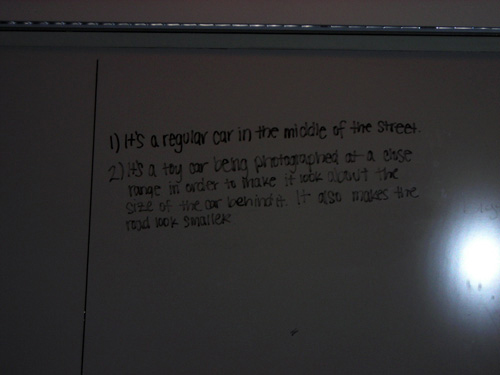 1) It's a regular car in the middle of the street.
2) It's a toy car being photographed at a close
range in order to make it look about the
size of the car behind it. It also makes the
road look smaller.